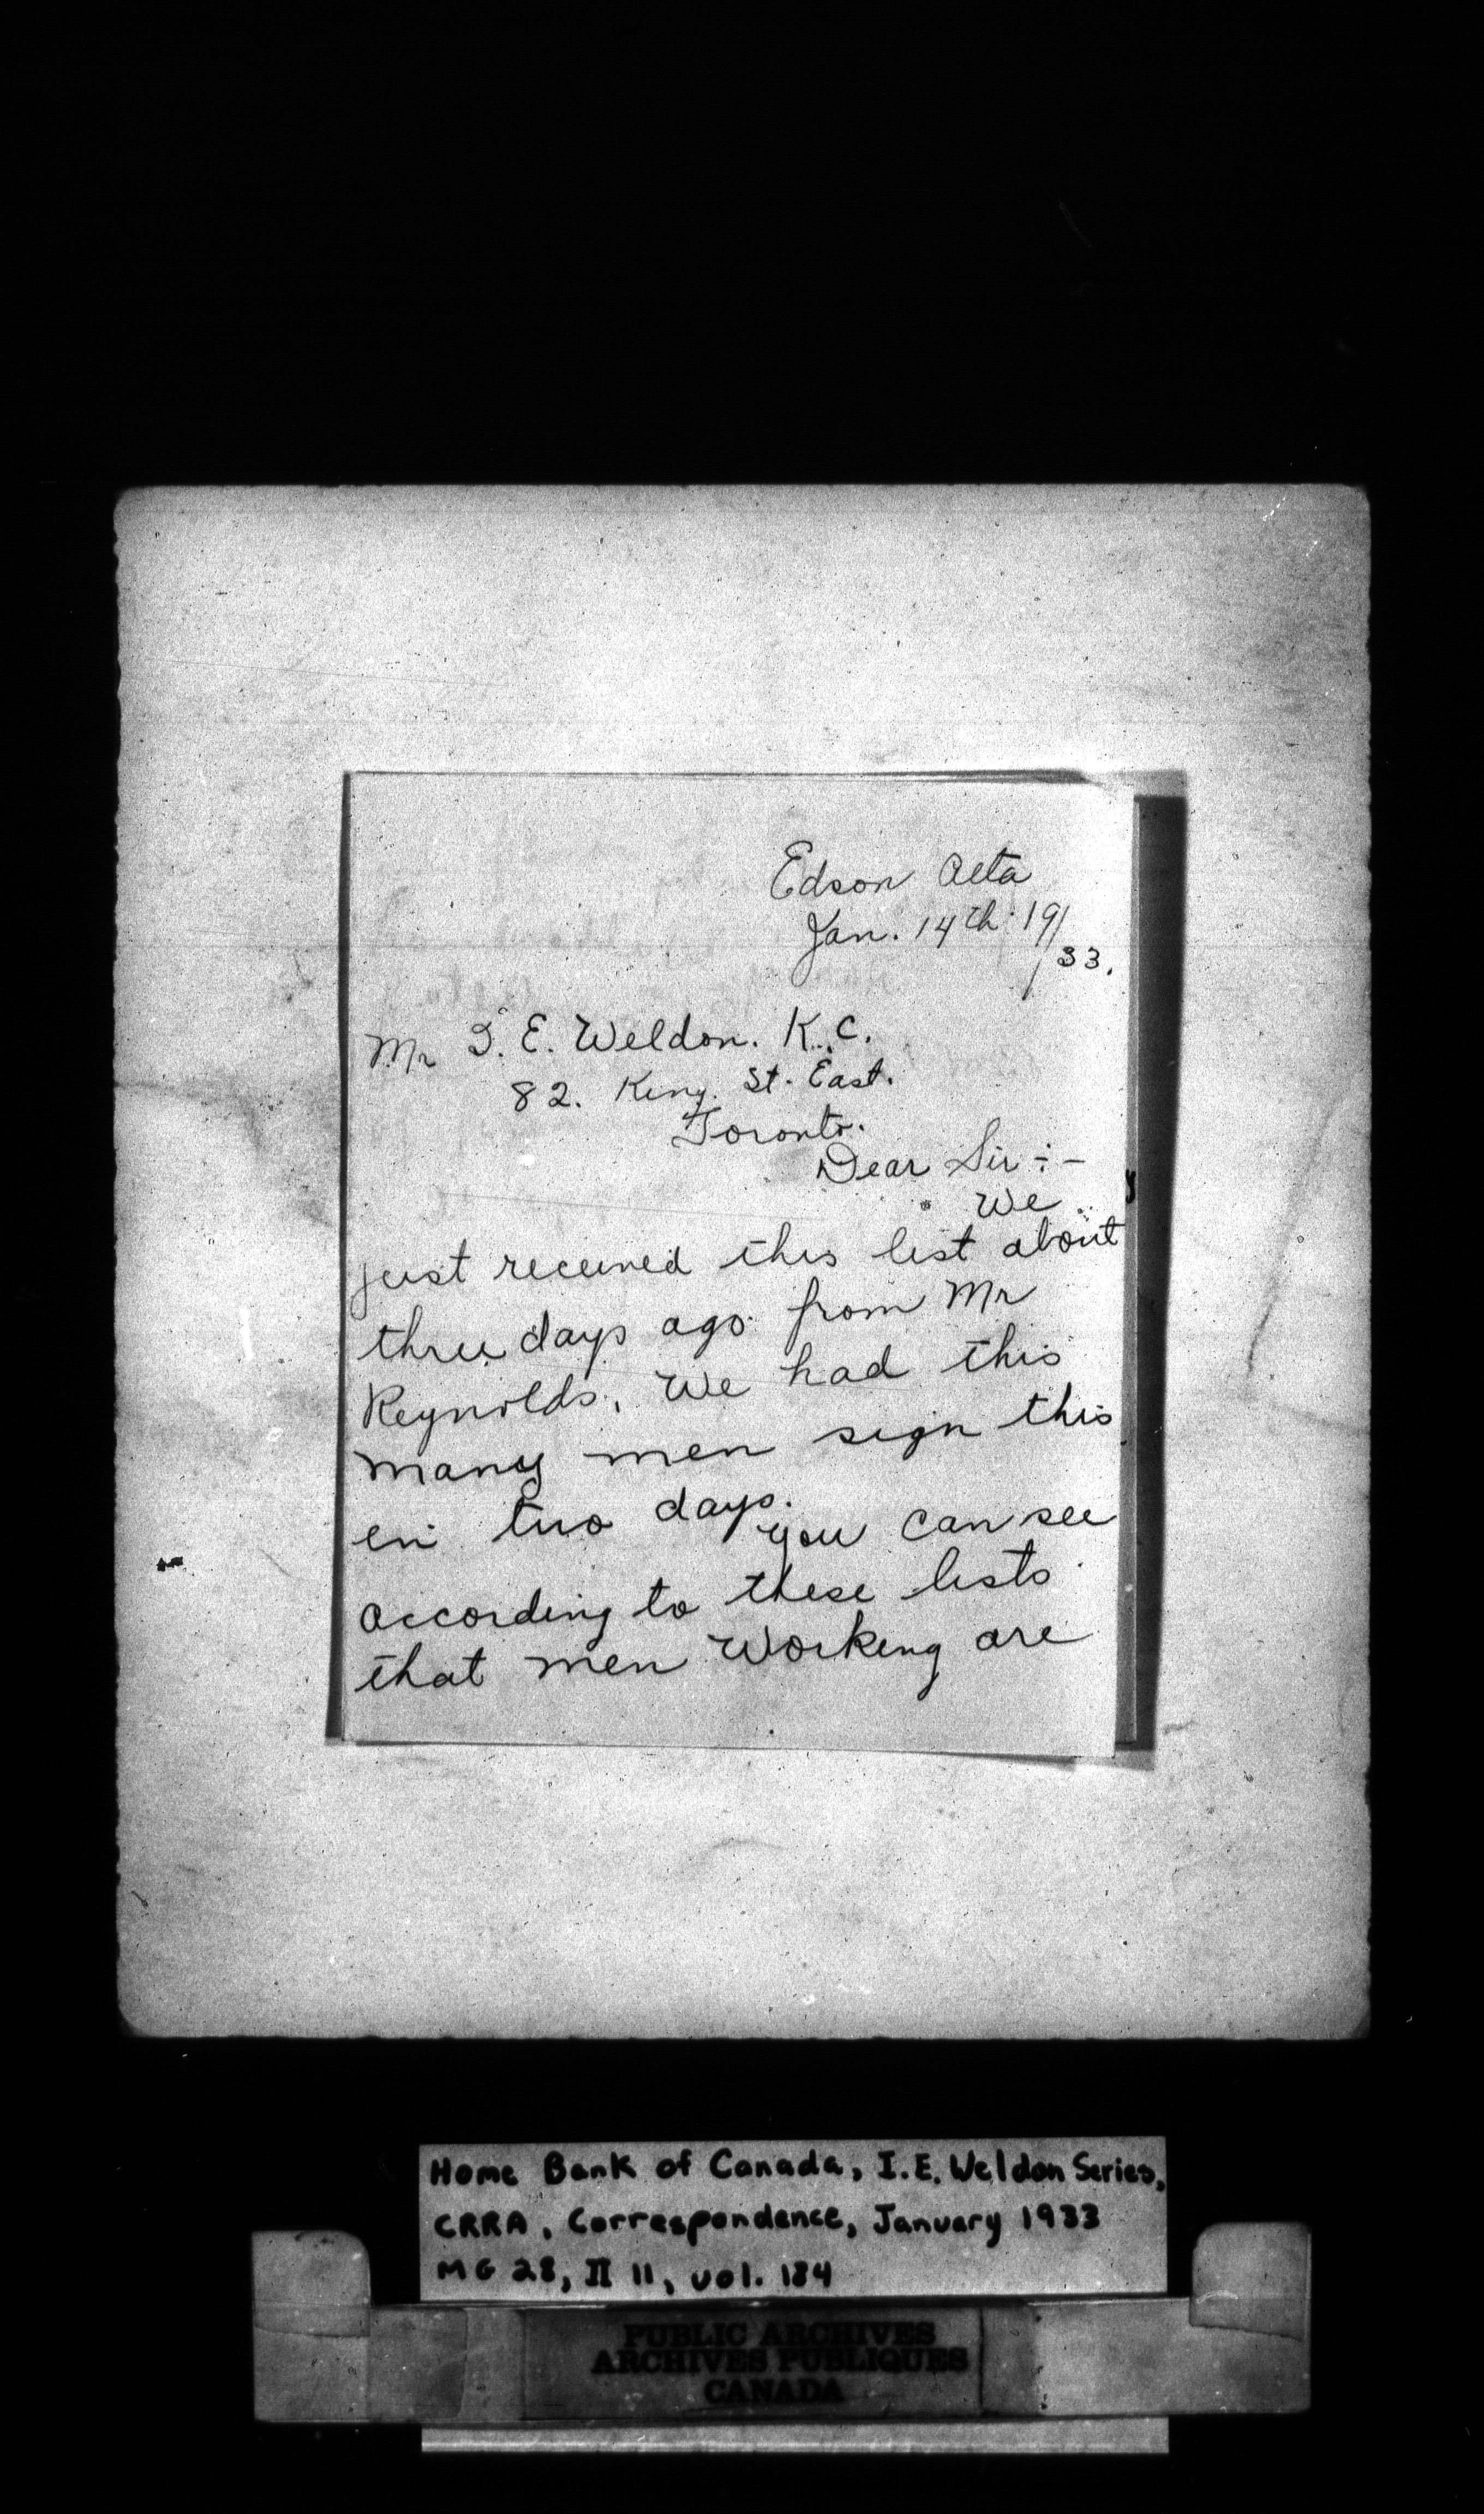 Edson Alta
Jan. 14th 19/
/33.
Mr I. E. Weldon. K.C.
82. King. St. East.
Toronto.
Dear Sir:-
We
just received this list about
three days ago from Mr
Reynolds, We had this
many men sign this
in two days. You can see
according to these lists
that men working are
Home Bank of Canada, I.E. Weldon Series,
CRRA, Correspondence, January 1933
MG 28, II 11, vol. 184
PUBLIC ARCHIVES
ARCHIVES PUBLIQUES
CANADA